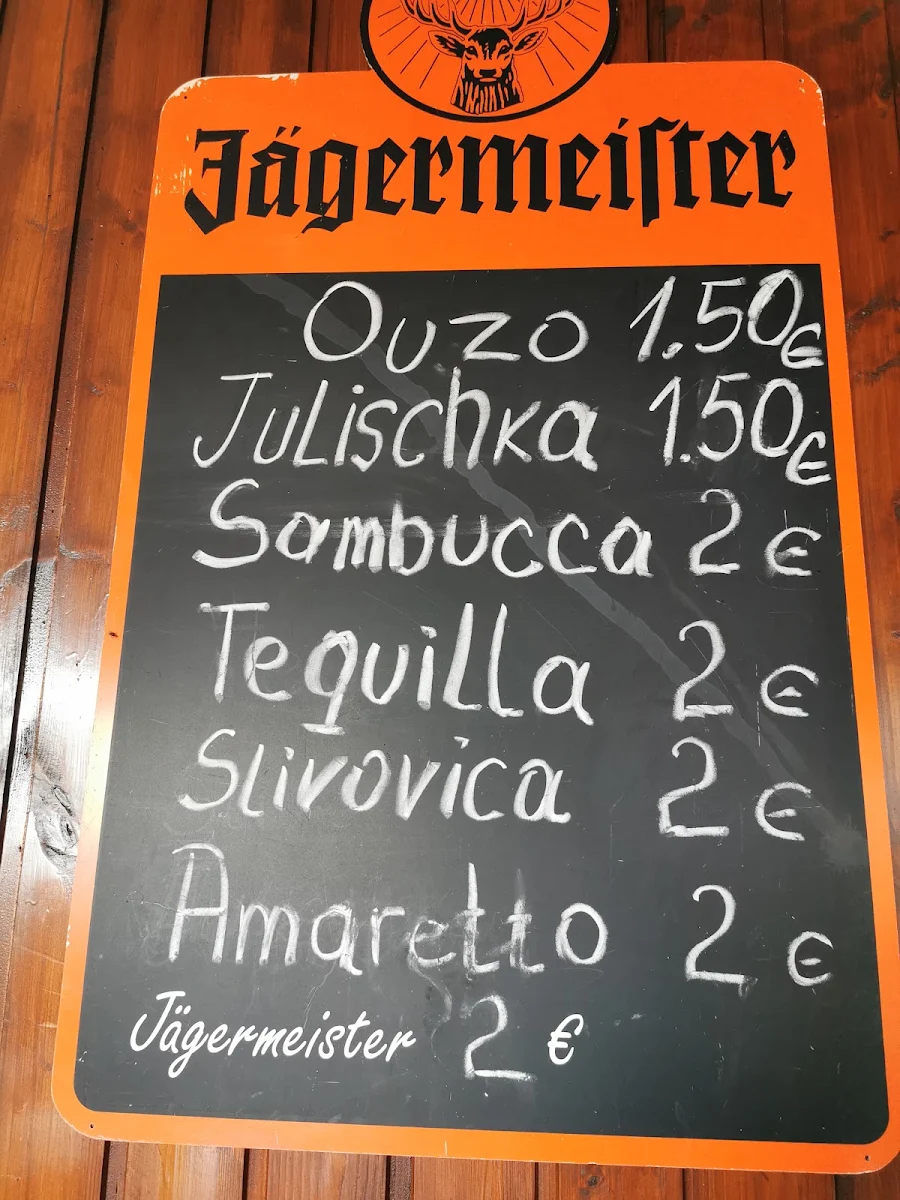 Jägermeiſter
Ouzo 1.50€
Julischka 1.50€
Sambucca 2 €
Tequilla 2 €
Slivovica 2 €
Amaretto 2 €
Jägermeister 2 €